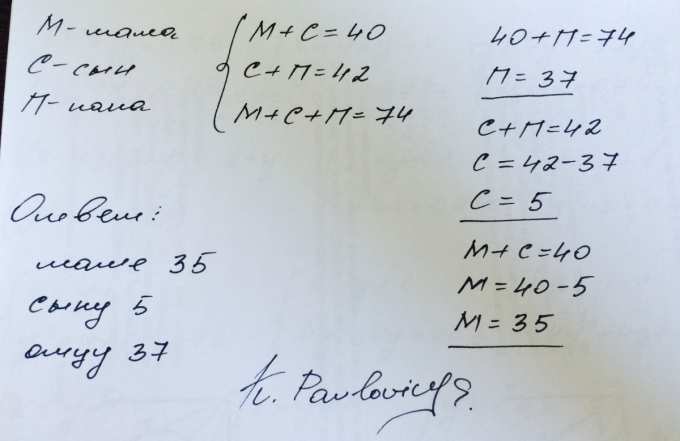 М - мама
С - сын
П - папа
М + С = 40
С + П = 42
М + С + П = 74
40 + П = 74
П = 37
С + П = 42
С = 42 - 37
С = 5
М + С = 40
М = 40 - 5
М = 35
Ответ:
маме 35
сыну 5
отцу 37
Pavlovich